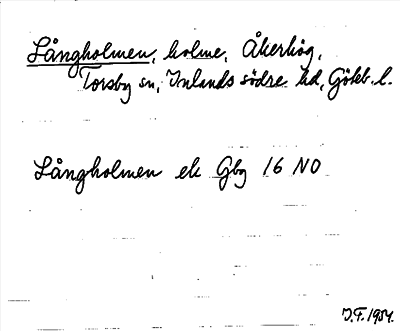 Långholmen, holme, Åkerhög,
Torsby sn, Inlands södre hd, Göteb. l.
Långholmen ek Gbg 16 NO
J.F. 1954.